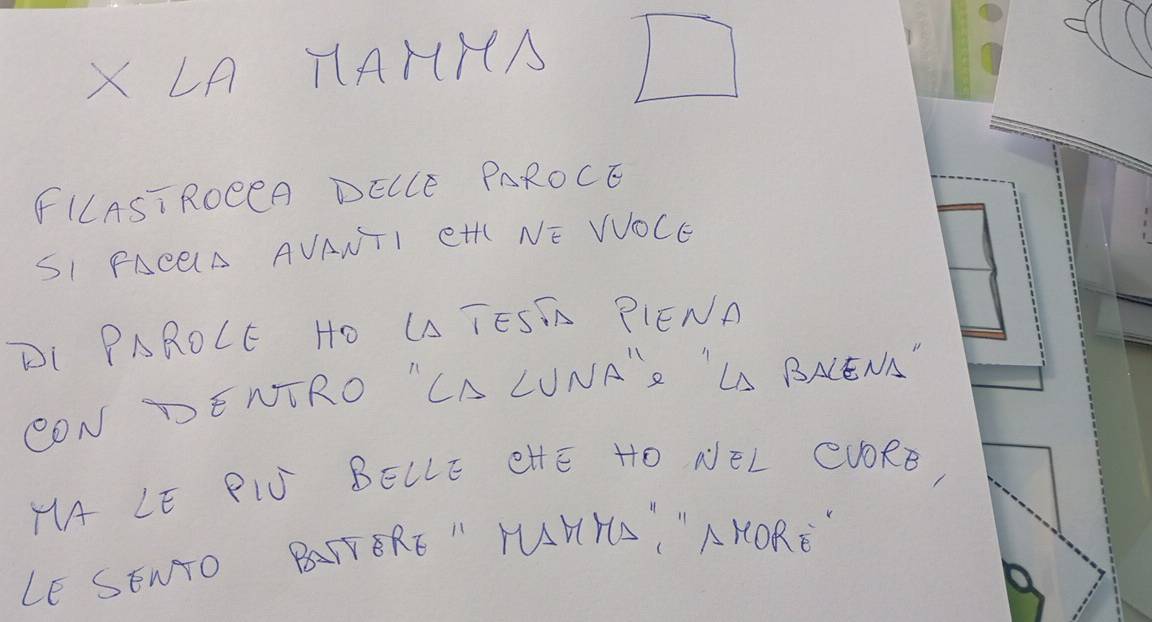 X LA MAMMA
FILASTROCCA DELLE PAROLE
SI FACCIA AVANTI CHI NE VUOLE
DI PAROLE HO LA TESTA PIENA
CON DENTRO "LA LUNA" e "LA BALENA"
MA LE PIÙ BELLE CHE HO NEL CUORE,
LE SENTO BATTERE "MAMMA", "AMORE"